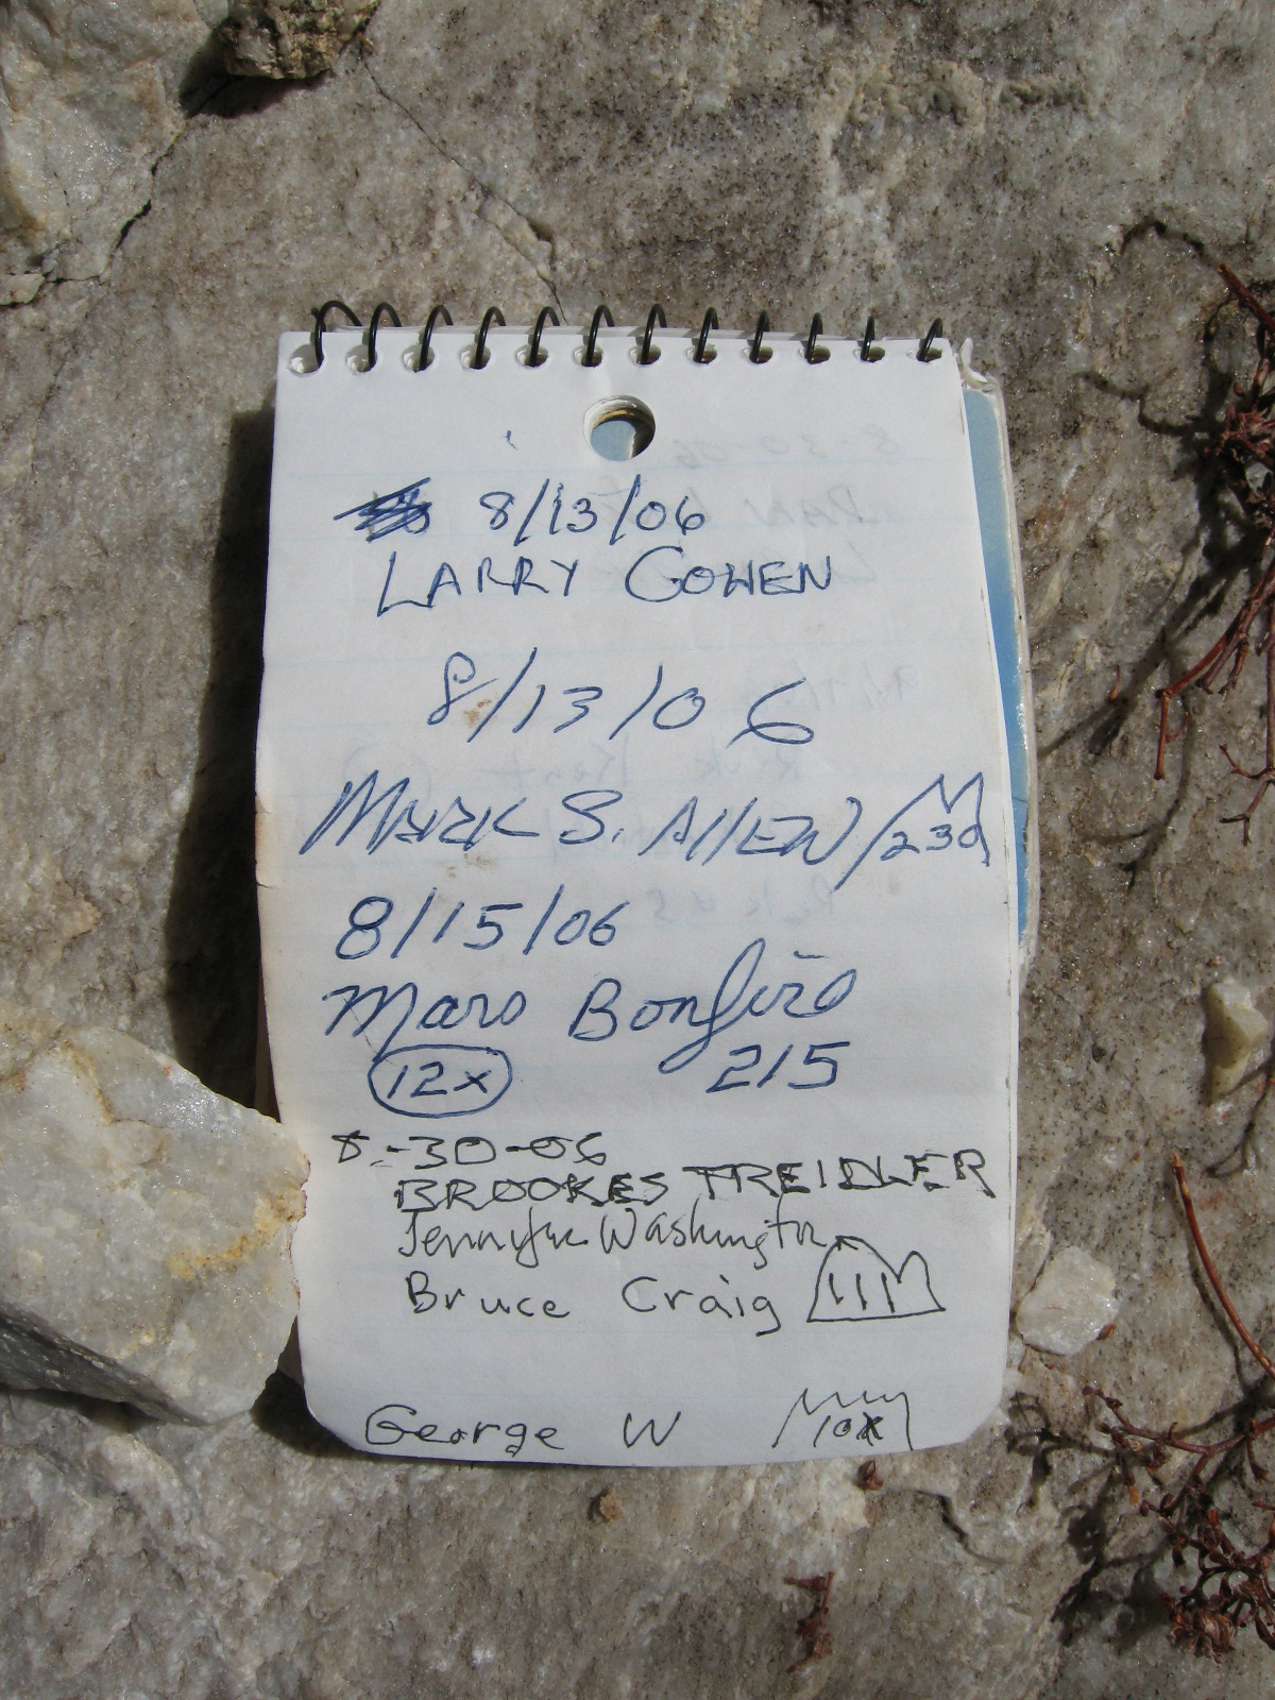 8/13/06
LARRY COHEN
8/13/06
MARK S. AllEN/23d
8/15/06
Mars Bonfire
12x 215
8-30-06
BROOKES TREIDLER
Jennifer Washington
Bruce Craig III
George W 10x